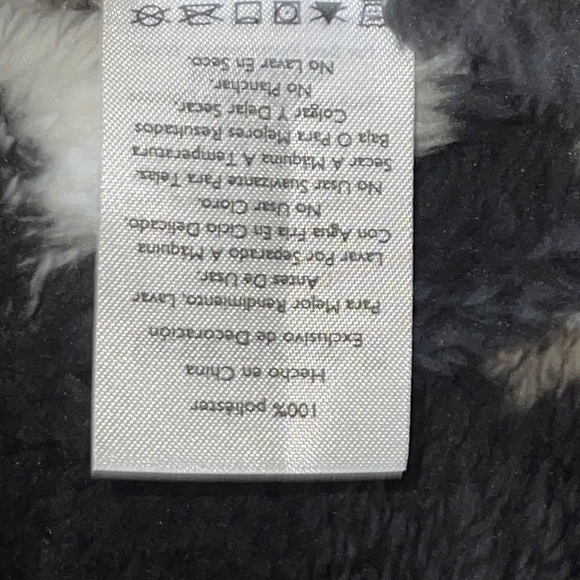 100% poliéster
Hecho en China
Exclusivo de Decoración
Para Mejor Rendimiento, Lavar
Antes De Usar.
Lavar Por Separado A Máquina
Con Agua Fria En Ciclo Delicado.
No Usar Cloro.
No Usar Suavizante Para Telas.
Secar A Máquina A Temperatura
Baja O Para Mejores Resultados
Colgar Y Dejar Secar.
No Planchar.
No Lavar En Seco.